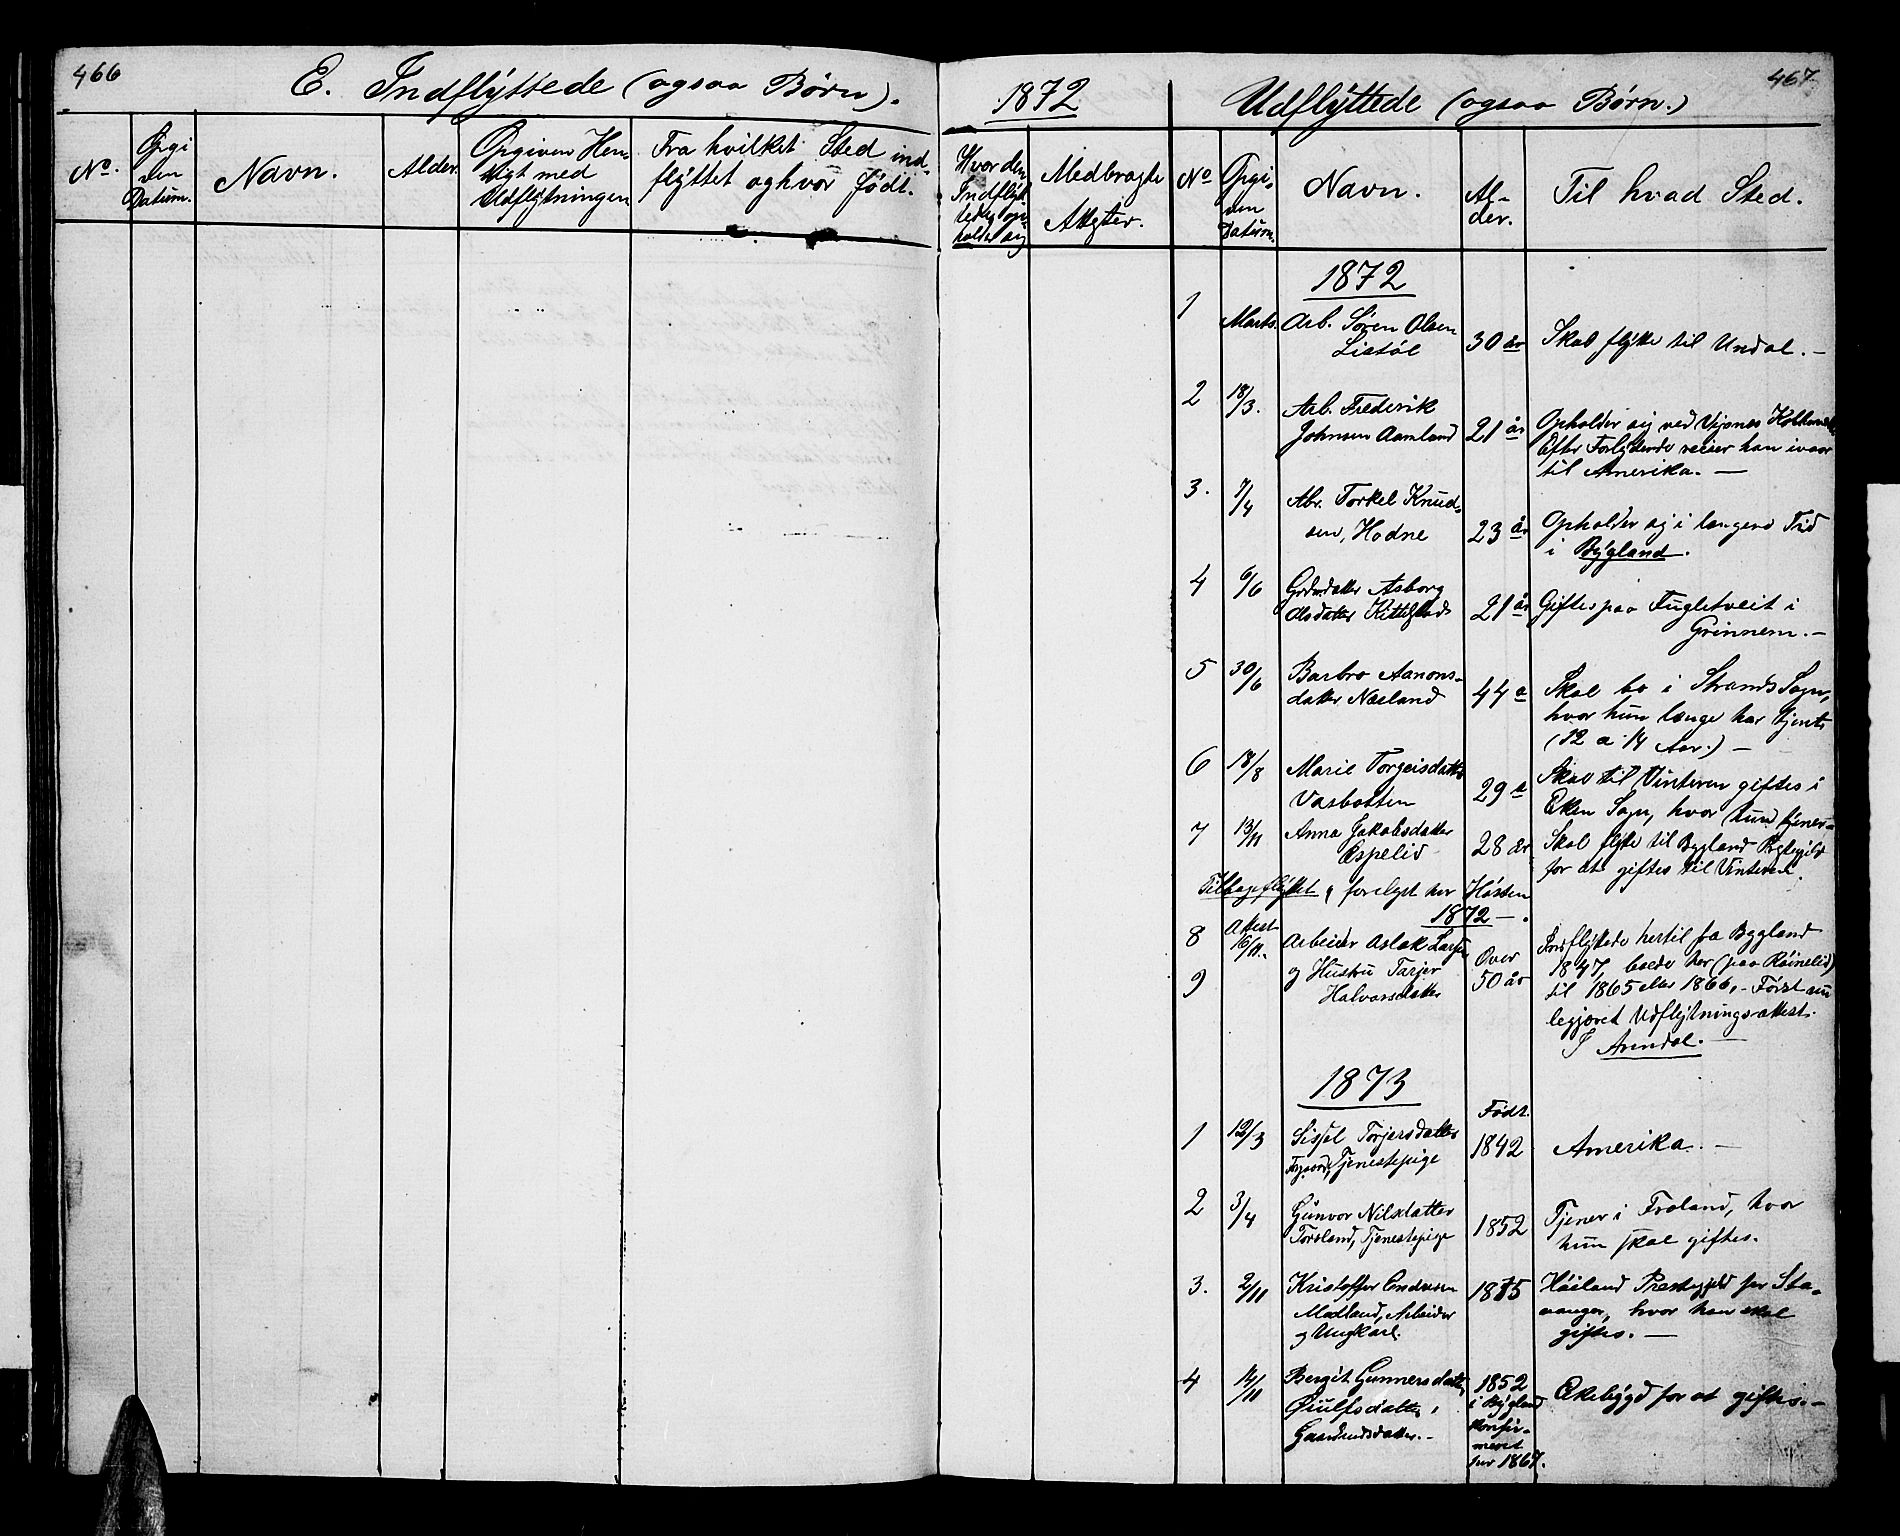 466
E. Indflyttede (ogsaa Børn).
No.
Opgi
ven
Datum.
Navn.
Alder.
Opgiven Hen-
sigt med
Udflytningen
Fra hvilket Sted ind-
flyttet og hvor født.
1872
Udflyttede (ogsaa Børn.)
467.
Hvor den
Indflyt-
tede op-
holder sig
Medbragte
Attester.
No
Opgi-
ven
Datum.
Navn.
Al-
der.
Til hvad Sted.
1872
1 Marts. Arb. Søren Olsen
Listøl 30 år Skal flytte til Undal. -
2 18/3. Arb. Frederik
Johnsen Aamland 21 år Opholder sig ved Vigsnes
Efter Forlydende reiser han ivaar
til Amerika. -
3. 7/4 Abr. Torkel Knud-
sen, Hodne 23 år Opholder sig i længere Tid
i Bygland.
4 6/6 Grdmdatter Asborg
Olsdatter 21 år Giftes paa Fugletveit i
Grinnem. -
5 30/6 Barbro Aanons-
datter Næsland 44 a Skal bo i Strands Sogn,
hvor hun længe har tjent
(12 a 14 Aar.) -
6 18/8 Marie Torgeisdatter
Vasbotten 29 a Skal til Vinteren giftes i
Eken Sogn, hvor hun tjener -
7 13/11 Anna Jakobsdatter
Espelid 28 år Skal flytte til Bygland Prgjeld
for at giftes til Vinteren.
Tilbageflyttet, forelyst her Høsten
1872 - .
8 Attest
16/11. Arbeider Aslak Larsen
9 og Hustru Tarjer
Halvorsdatter Over
50 år Indflyttede hertil fra Bygland
1847, boede her (paa Røinelid)
til 1865 eller 1866, - Først nu
begjæret Udflytnings-attest.
I Arendal. -
1873
Født.
1 12/3 Sissel Torjersdatter
Tjenestepige 1842 Amerika. -
2 3/4 Gunvor Nilsdatter
Torsland, Tjenestepige 1852 Tjener i Froland, hvor
hun skal giftes.
3. 2/11 Kristoffer Endresen
Mælland, Arbeider
og Ungkarl. Høiland Prestegjeld per Sta-
vanger, hvor han skal
giftes. -
4 14/11 Bergit Gunnersdatter,
Gaardmdsdatter. - 1852
i Bygland
konfir-
meret
her 1867. Ekebygd for at giftes. -